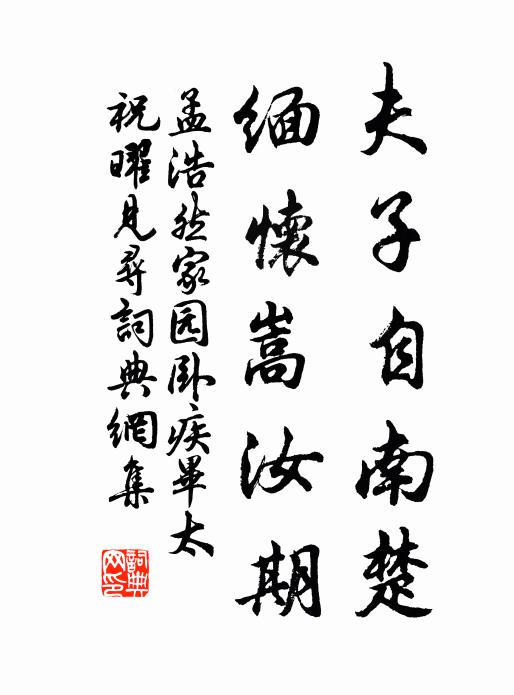 夫子自南楚
缅懷嵩汝期
孟浩然家园卧疾畢太
祝曜見尋詞典網集
詞典网印